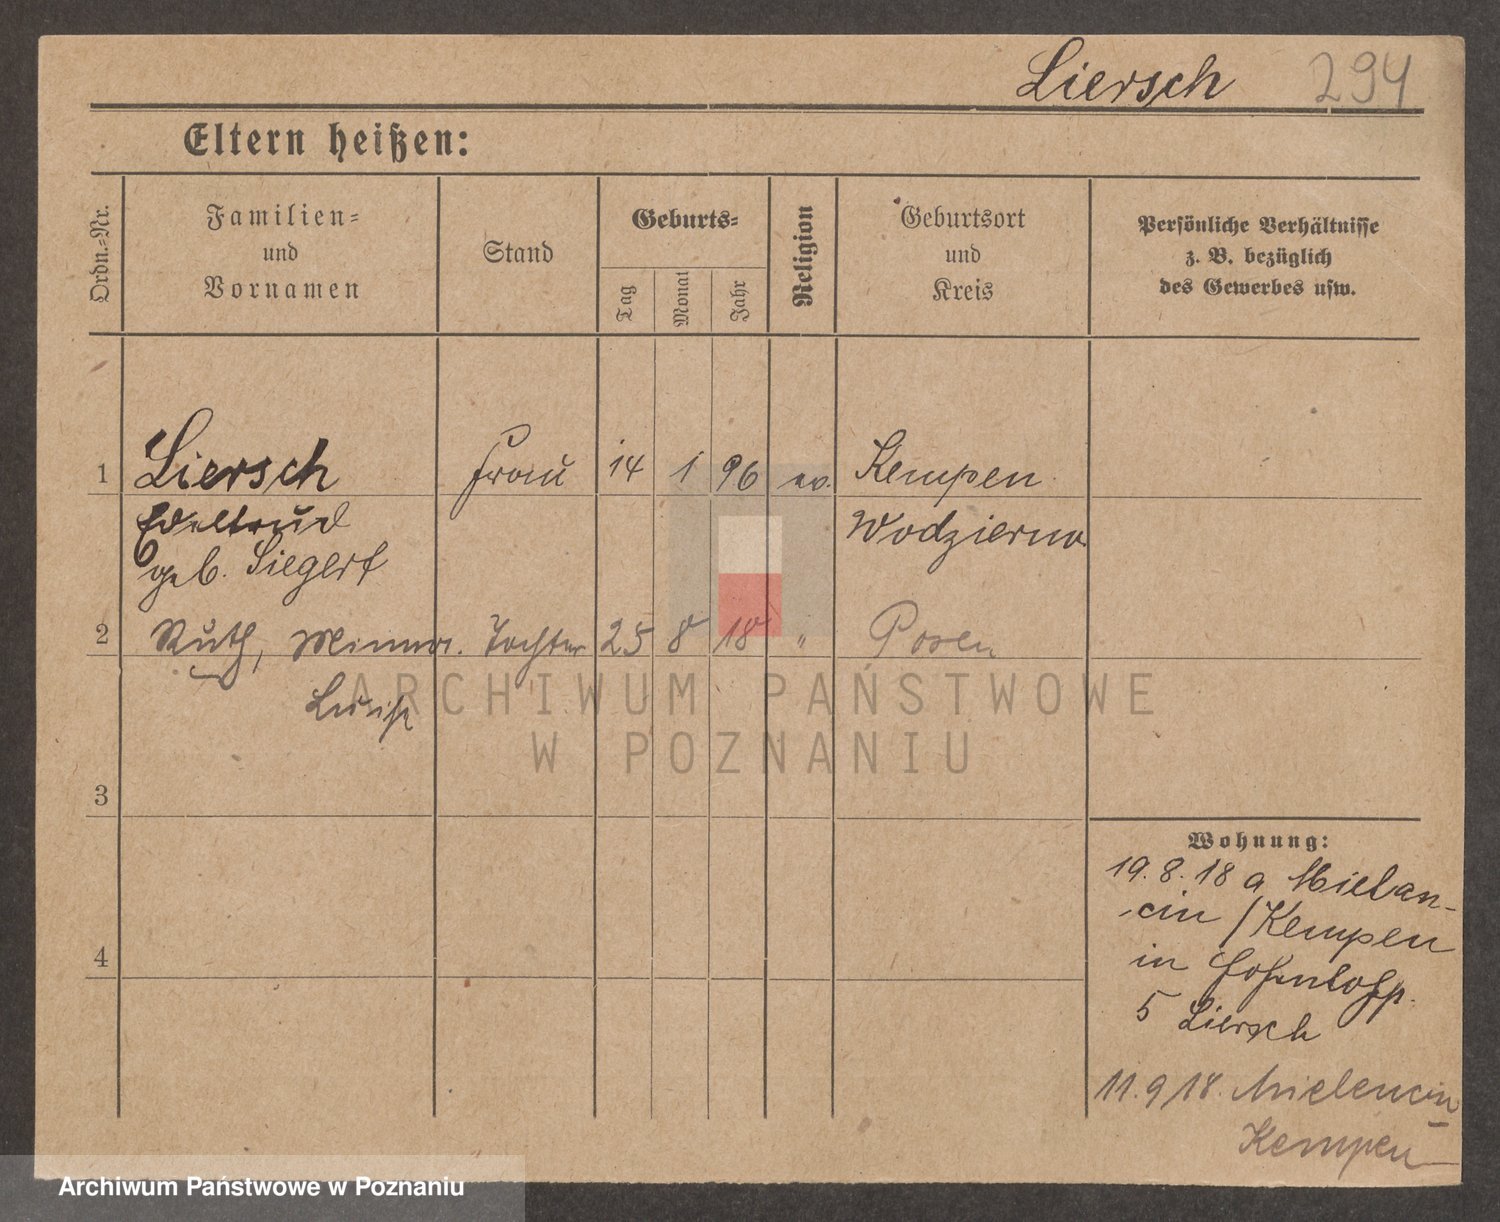 Liersch 294
Eltern heißen:
Ordn.=Nr.
Familien=
und
Vornamen
Stand
Geburts=
Tag
Monat
Jahr
Religion
Geburtsort
und
Kreis
Persönliche Verhältnisse
z. B. bezüglich
des Gewerbes usw.
1 Liersch Frau 14 1 96 ev. Kempen
Edeltrud
geb. Siegert
2 Ruth, Minna. Tochter 25 8 18 " Posen
Luise
3
4
Wohnung:
19.8.18 a Mielan-
cin / Kempen
in
5 Liersch
11.9.18. Mielencin
Kempen
ARCHIWUM PAŃSTWOWE
W POZNANIU
Archiwum Państwowe w Poznaniu